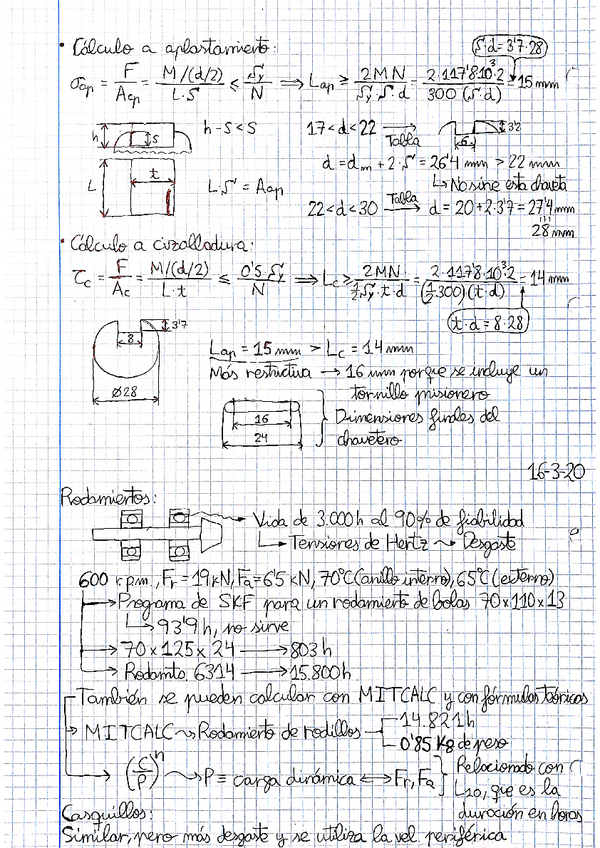 • Cálculo a aplastamiento:
S'·d = 3'7·28
σap = F/Aap = M/(d/2) / L·S' ≤ Sy/N ⟹ Lap ≥ 2MN / Sy·S'·d = 2·117'8·10³·2 / 300 (S'·d) = 15 mm
h-S < S
17 < d < 22 → Tabla
6
3'2
h
S
t
L
d = dm + 2·S' = 26'4 mm > 22 mm
↳ No sirve esta chaveta
L·S' = Aap
22 < d < 30 → Tabla d = 20 + 2·3'7 = 27'4 mm
28 mm
• Cálculo a cizalladura:
τc = F/Ac = M/(d/2) / L·t ≤ 0'5·Sy/N ⟹ Lc ≥ 2MN / ½·Sy·t·d = 2·117'8·10³·2 / (½·300)(t·d) = 14 mm
t·d = 8·28
3'7
8
Ø28
Lap = 15 mm > Lc = 14 mm
Más restrictiva → 16 mm porque se incluye un
tornillo prisionero
16
24
Dimensiones finales del
chavetero
16-3-20
Rodamientos:
Vida de 3.000 h al 90% de fiabilidad
↳ Tensiones de Hertz ~ Desgaste
600 r.p.m., Fr = 19 kN, Fa = 6'5 kN, 70°C (anillo interno), 65°C (externo)
→ Programa de SKF para un rodamiento de bolas 70x110x13
↳ 93'9 h, no sirve
→ 70 x 125 x 24 → 803 h
→ Rodamto. 6314 → 15.800 h
También se pueden calcular con MITCALC y con fórmulas teóricas
→ MITCALC ~ Rodamiento de rodillos
14.821 h
0'85 Kg de peso
→ (C/P)ⁿ ~ P ≡ carga dinámica ⟷ Fr, Fa
Relacionado con
L10, que es la
duración en horas
Casquillos:
Similar, pero más desgaste y se utiliza la vel. periférica